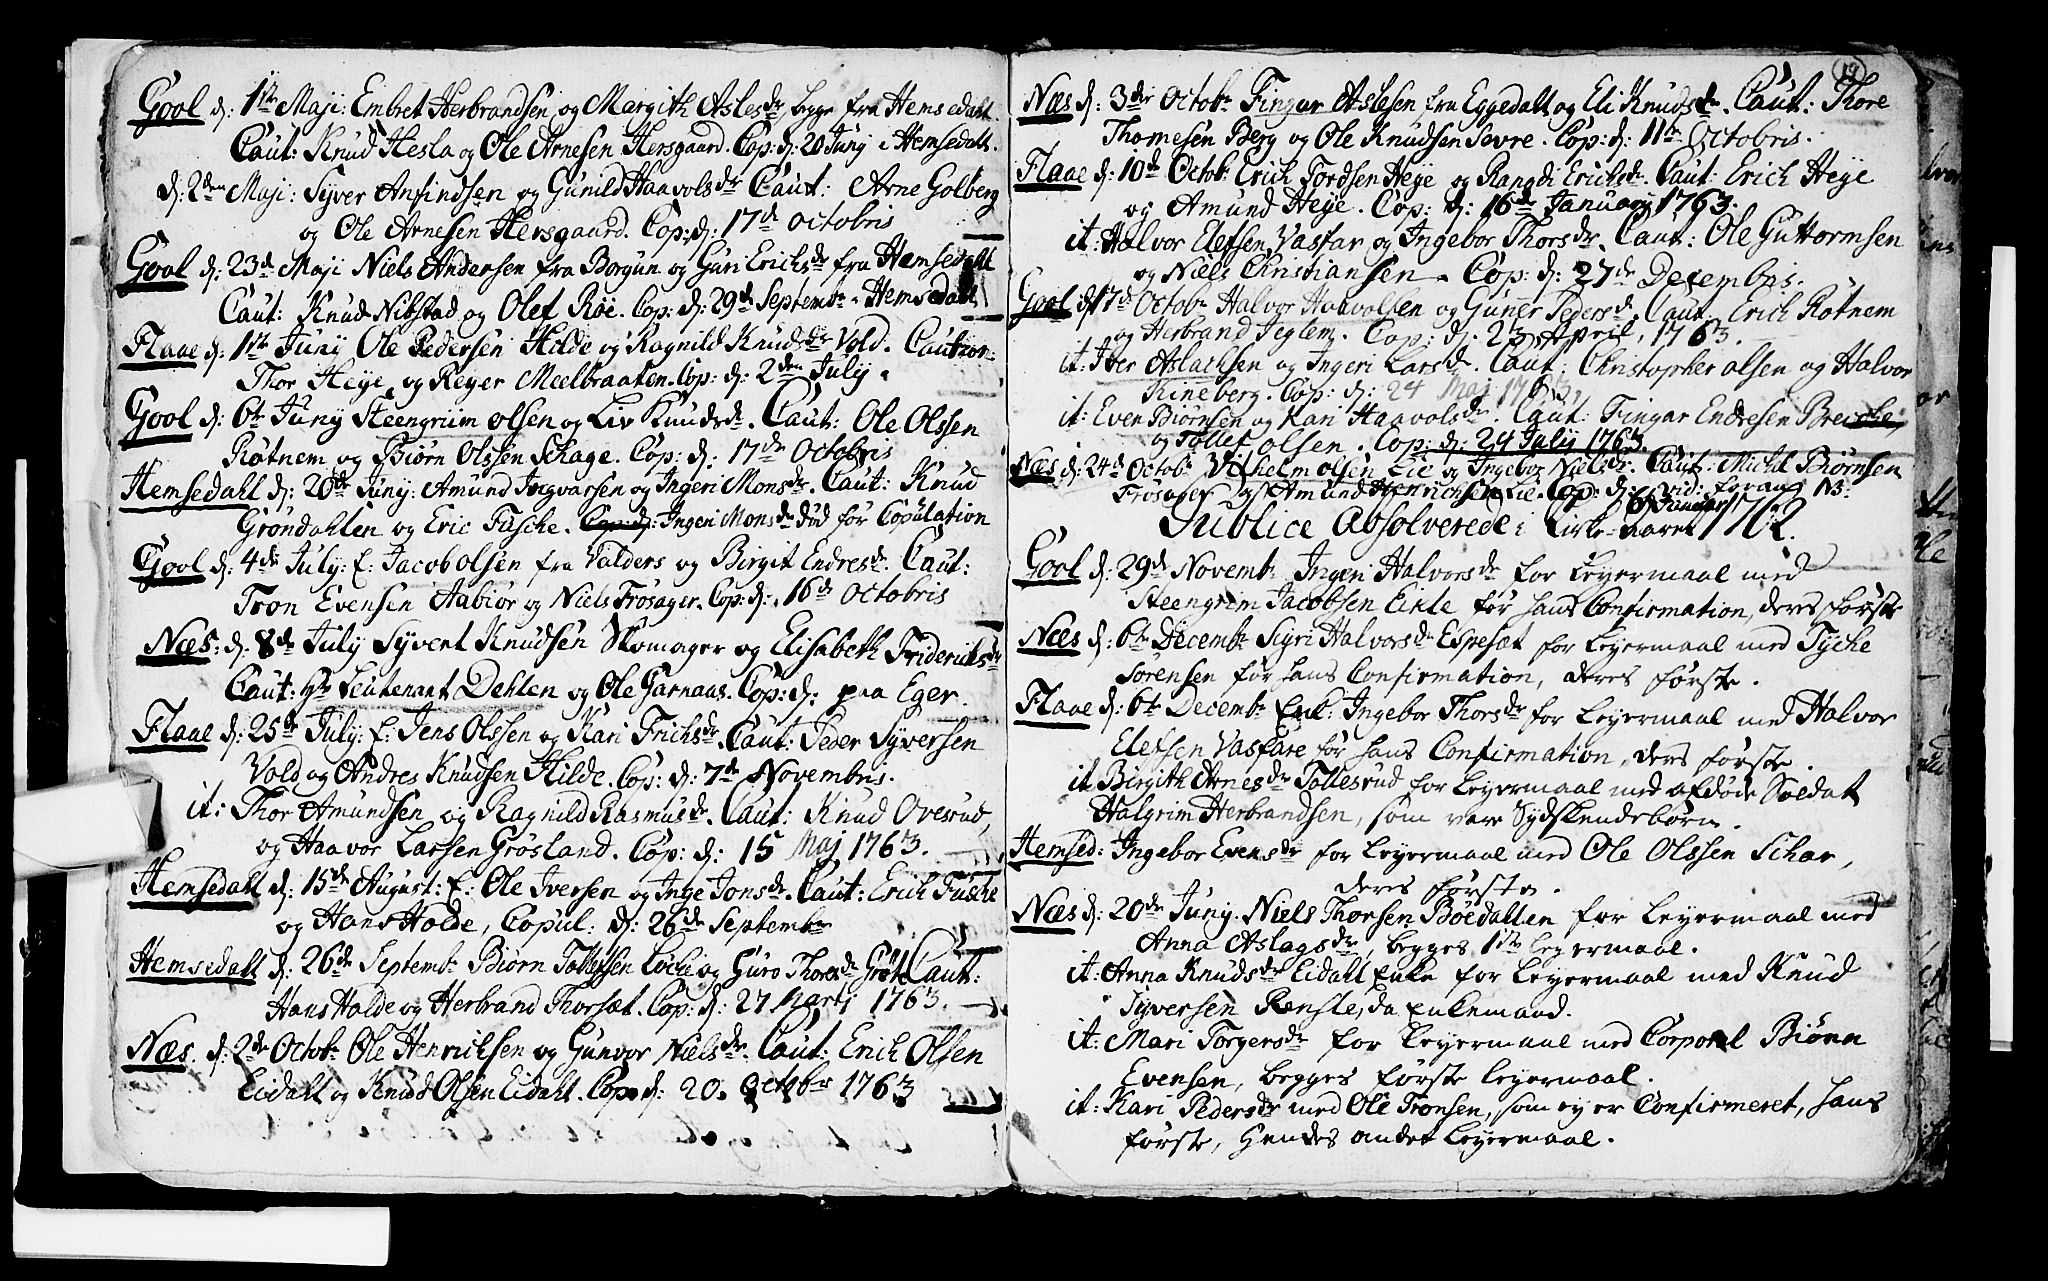 Gool d: 1ste Maji: Embret Herbrandsen og Margith Aslesdr begge fra Hemsedahl.
Caut: Knud Hesla og Ole Arnesen Hersgaard. Cop: d: 20 Junij i Hemsedahl.
d: 2den Maji: Syver Anfindsen og Gunild Haavolsdr Caut: Arne Golberg
og Ole Arnesen Hersgaard. Cop: d: 17de Octobris
Gool d: 23de Maji Niels Andersen fra Borgun og Guri Erichsdr fra Hemsedahl
Caut: Knud Nibstad og Olef Röe. Cop: d: 29de Septembr i Hemsedahl
Flaae d: 1ste Junij Ole Pedersen Hilde og Ragnild Knudsdr Vold. Caution:
Thor Heÿe og Reyer Meelbraaten. Cop: d: 2den Julij.
Gool d: 6te Junij Steengrim olsen og Liv Knudsdr. Caut: Ole Olssen
Rotnem og Biørn Olssen Schage. Cop: d: 17de Octobris
Hemsedahl d: 20de Junij: Amund Ingvarsen og Ingeri Monsdr. Caut: Knud
Gröndahlen og Eric Fusche. Cop: d: Ingeri Monsdr död för Copulation
Gool d: 4de Julij: f: Jacob olsen fra Valders og Birgit Endresdr. Caut:
Tron Evensen Aabiör og Niels Frösager. Cop: d: 16de Octobris
Næs: d: 8de Julij Syvert Knudsen Skomager og Elisabeth Friderichsdr
Caut: Hr Leutenant Dehlen og Ole Garnaas. Cop: d: paa Eger.
Flaae d: 25de Julij: f: Jens Olssen og Kari Erichsdr. Caut: Peder Syversen
Vold og Andres Knudsen Hilde. Cop: d: 7de Novembris.
it: Thor Amundsen og Ragnild Rasmusdr. Caut: Knud Ovesrud,
og Haavor Larsen Grösland. Cop: d: 15 Maj 1763.
Hemsedahl d: 15de August: f: Ole Iversen og Inge Jonsdr. Caut: Erich Fusche
og Hans Holde, Copul: d: 26de Septembr
Hemsedahl d: 26de Septembr Biørn Tollefsen Löche og Guro Thoresdr Gröt Caut:
Hans Holde og Herbrand Thorset. Cop: d: 27 Martj 1763.
Næs. d: 2de Octobr Ole Henrichsen og Gunvor Nielsdr. Caut: Erich Olsen
Eidahl og Knud Olsen Eidahl. Cop: d: 20. Octobr 1763
19
Næs d: 3die Octobr Fingar Aslesen fra Eggedahl og Eli Knudsdr. Caut: Thore
Thomesen Berg og Ole Knudsen Sevre. Cop: d: 11te Octobris.
Flaae d: 10de Octobr Erich Tordsen Heÿe og Rangdi Erichsdr. Caut: Erich Heÿe
og Amund Heÿe. Cop: d: 16de Januarij 1763.
it: Halvor Elefsen Vasfar og Ingebor Thorsdr. Caut: Ole Guttormsen
og Niels Christiansen. Cop: d: 27de Decembris.
Gool d: 17de Octobr Halvor Haavolsen og Guner Pedersdr. Caut: Erich Rotnem
og Herbrand Teglem. Cop: d: 23 April, 1763.
it: Iver Aslachsen og Ingeri Larsdr. Caut: Christopher olsen og Halvor
Rineberg. Cop: d: 24 Maj 1763.
it: Even Biørnsen og Kari Haavolsdr. Caut: Fingar Endresen Breiche,
og Tollef olsen. Cop: d: 24 Julij 1763.
Næs d: 24de Octobr Vilhelm olsen Lie og Ingebor Nielsdr. Caut: Michel Biørnsen
Frösager og Amund Henrichsen Lie. Cop: d: 6 Januarij
Publice Absolverede i Kirke-Aaret 1762.
Gool d: 29de Novembr Ingeri Halvorsdr for Leyermaal med
Steengrim Jacobsen Eikle för hans Confirmation, deres förste
Næs d: 6te Decembr Sigri Halvorsdr Espeset for Leyermaal med Tyche
Sörensen för hans Confirmation, deres förste.
Flaae d: 6te Decembr Enl: Ingebor Thorsdr for Leyermaal med Halvor
Elefsen Vasfare för hans Confirmation, ders förste.
it Birgith Arnesdr Tollesrud for Leyermaal med afdöde Soldat
Halgrim Herbrandsen, som vare Sydskendebörn.
Hemsed: Ingebor Evensdr for Leyermaal med Ole Olssen Schar,
deres förste.
Næs d: 20de Junij. Niels Thorsen Böedalten for Leyermaal med
Anna Aslagsdr, begges 1ste leyermaal.
it: Anna Knudsdr Eidahl Enke for Leyermaal med Knud
Syversen Rensle, da Enkemand.
it: Mari Torgersdr for Leyermaal med Corporal Biörn
Evensen, begges förste leyermaal.
it: Kari Pedersdr med Ole Tronsen, som ey er Confirmeret, hans
förste, hendes andet leyermaal.